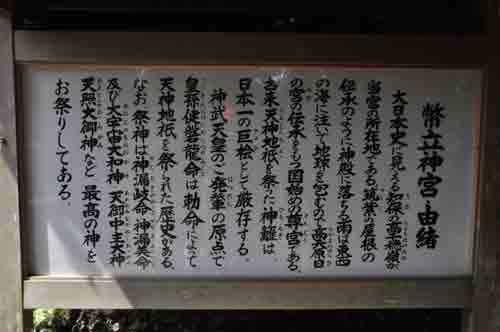 幣立神宮由緒
大日本史に見える知保の高千穂嶺が
当宮の所在地である。筑紫の屋根の
伝承のように神殿に落ちる雨は東西
の海に注いで地球を包むので高天原日
の宮の伝承をもつ国始めの尊宮である。
古来天神地祇を祭った神籬は
日本一の巨桧として厳存する。
神武天皇のご発輦の原点で
皇孫健磐龍命は勅命によって
天神地祇を祭られた歴史がある。
なお祭神は神漏岐命・神漏美命
及び大宇宙大和神 天御中主大神
天照大御神など 最高の神を
お祭りしてある。